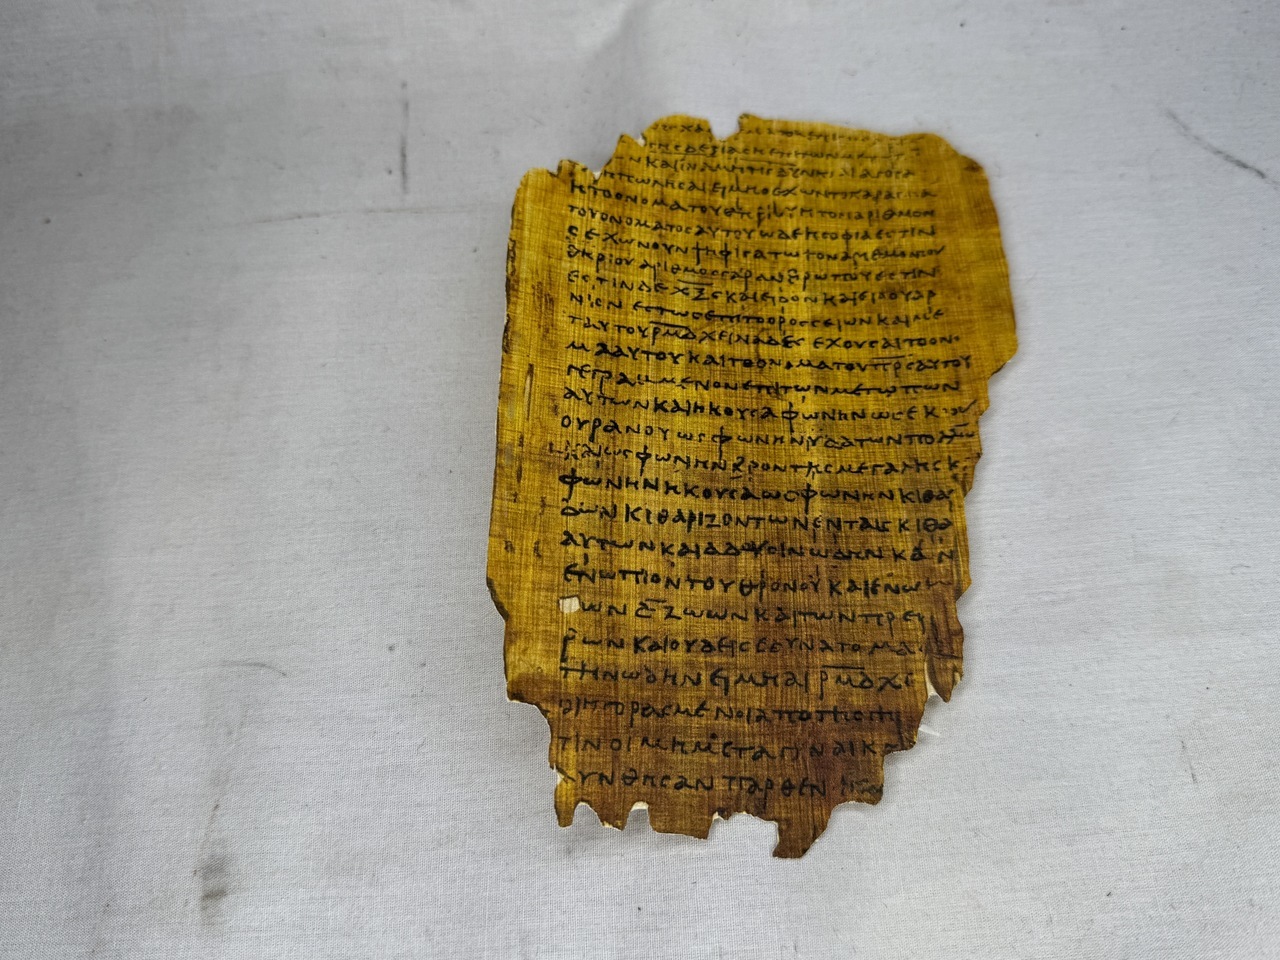 ΤΗΣΔΕΞΙΑΣΗΕΠΙΤΩΝ
ΝΚΑΙΙΝΑΜΗΤΙΣΔΥΝΗΤΑΙΑΓΟΡΑ
ΗΠΩΛΗΣΑΙΕΙΜΗΟΕΧΩΝΤΟΧΑΡΑΓΜΑ
ΗΤΟΟΝΟΜΑΤΟΥΘΗΡΙΟΥΗΤΟΝΑΡΙΘΜΟΝ
ΤΟΥΟΝΟΜΑΤΟΣΑΥΤΟΥΩΔΕΗΣΟΦΙΑΕΣΤΙΝ
ΟΕΧΩΝΟΥΝΨΗΦΙΣΑΤΩΤΟΝΑΡΙΘΜΟΝΤΟΥ
ΘΗΡΙΟΥΑΡΙΘΜΟΣΓΑΡΑΝΘΡΩΠΟΥΕΣΤΙΝ
ΕΣΤΙΝΔΕΧΞϚΚΑΙΕΙΔΟΝΚΑΙΕΙΔΟΥΑΡ
ΝΙΟΝΕΣΤΩΣΕΠΙΤΟΟΡΟΣΣΕΙΩΝΚΑΙΜΕ
ΤΑΥΤΟΥΡΜΔΧΕΙΛΙΑΔΕΣΕΧΟΥΣΑΙΤΟΟΝΟ
ΜΑΑΥΤΟΥΚΑΙΤΟΟΝΟΜΑΤΟΥΠΡΣΑΥΤΟΥ
ΓΕΓΡΑΜΜΕΝΟΝΕΠΙΤΩΝΜΕΤΩΠΩΝ
ΑΥΤΩΝΚΑΙΗΚΟΥΣΑΦΩΝΗΝΩΣΕΚΤΟΥ
ΟΥΡΑΝΟΥΩΣΦΩΝΗΝΥΔΑΤΩΝΠΟΛΛΩ
ΚΑΙΩΣΦΩΝΗΝΒΡΟΝΤΗΣΜΕΓΑΛΗΣΚ
ΦΩΝΗΝΗΚΟΥΣΑΩΣΦΩΝΗΝΚΙΘΑΡ
ΔΩΝΚΙΘΑΡΙΖΟΝΤΩΝΕΝΤΑΙΣΚΙΘΑ
ΑΥΤΩΝΚΑΙΑΔΟΥΣΙΝΩΔΗΝΚΑΙΝ
ΕΝΩΠΙΟΝΤΟΥΘΡΟΝΟΥΚΑΙΕΝΩ
ΩΝΔΖΩΩΝΚΑΙΤΩΝΠΡΕΣ
ΡΩΝΚΑΙΟΥΔΕΙΣΕΔΥΝΑΤΟΜΑ
ΤΗΝΩΔΗΝΕΙΜΗΑΙΡΜΔΧΕ
ΟΙΗΓΟΡΑΣΜΕΝΟΙΑΠΟΤΗΣΓΗΣ
ΤΙΝΟΙΜΗΜΕΤΑΓΥΝΑΙΚ
ΛΥΝΘΗΣΑΝΠΑΡΘΕΝ